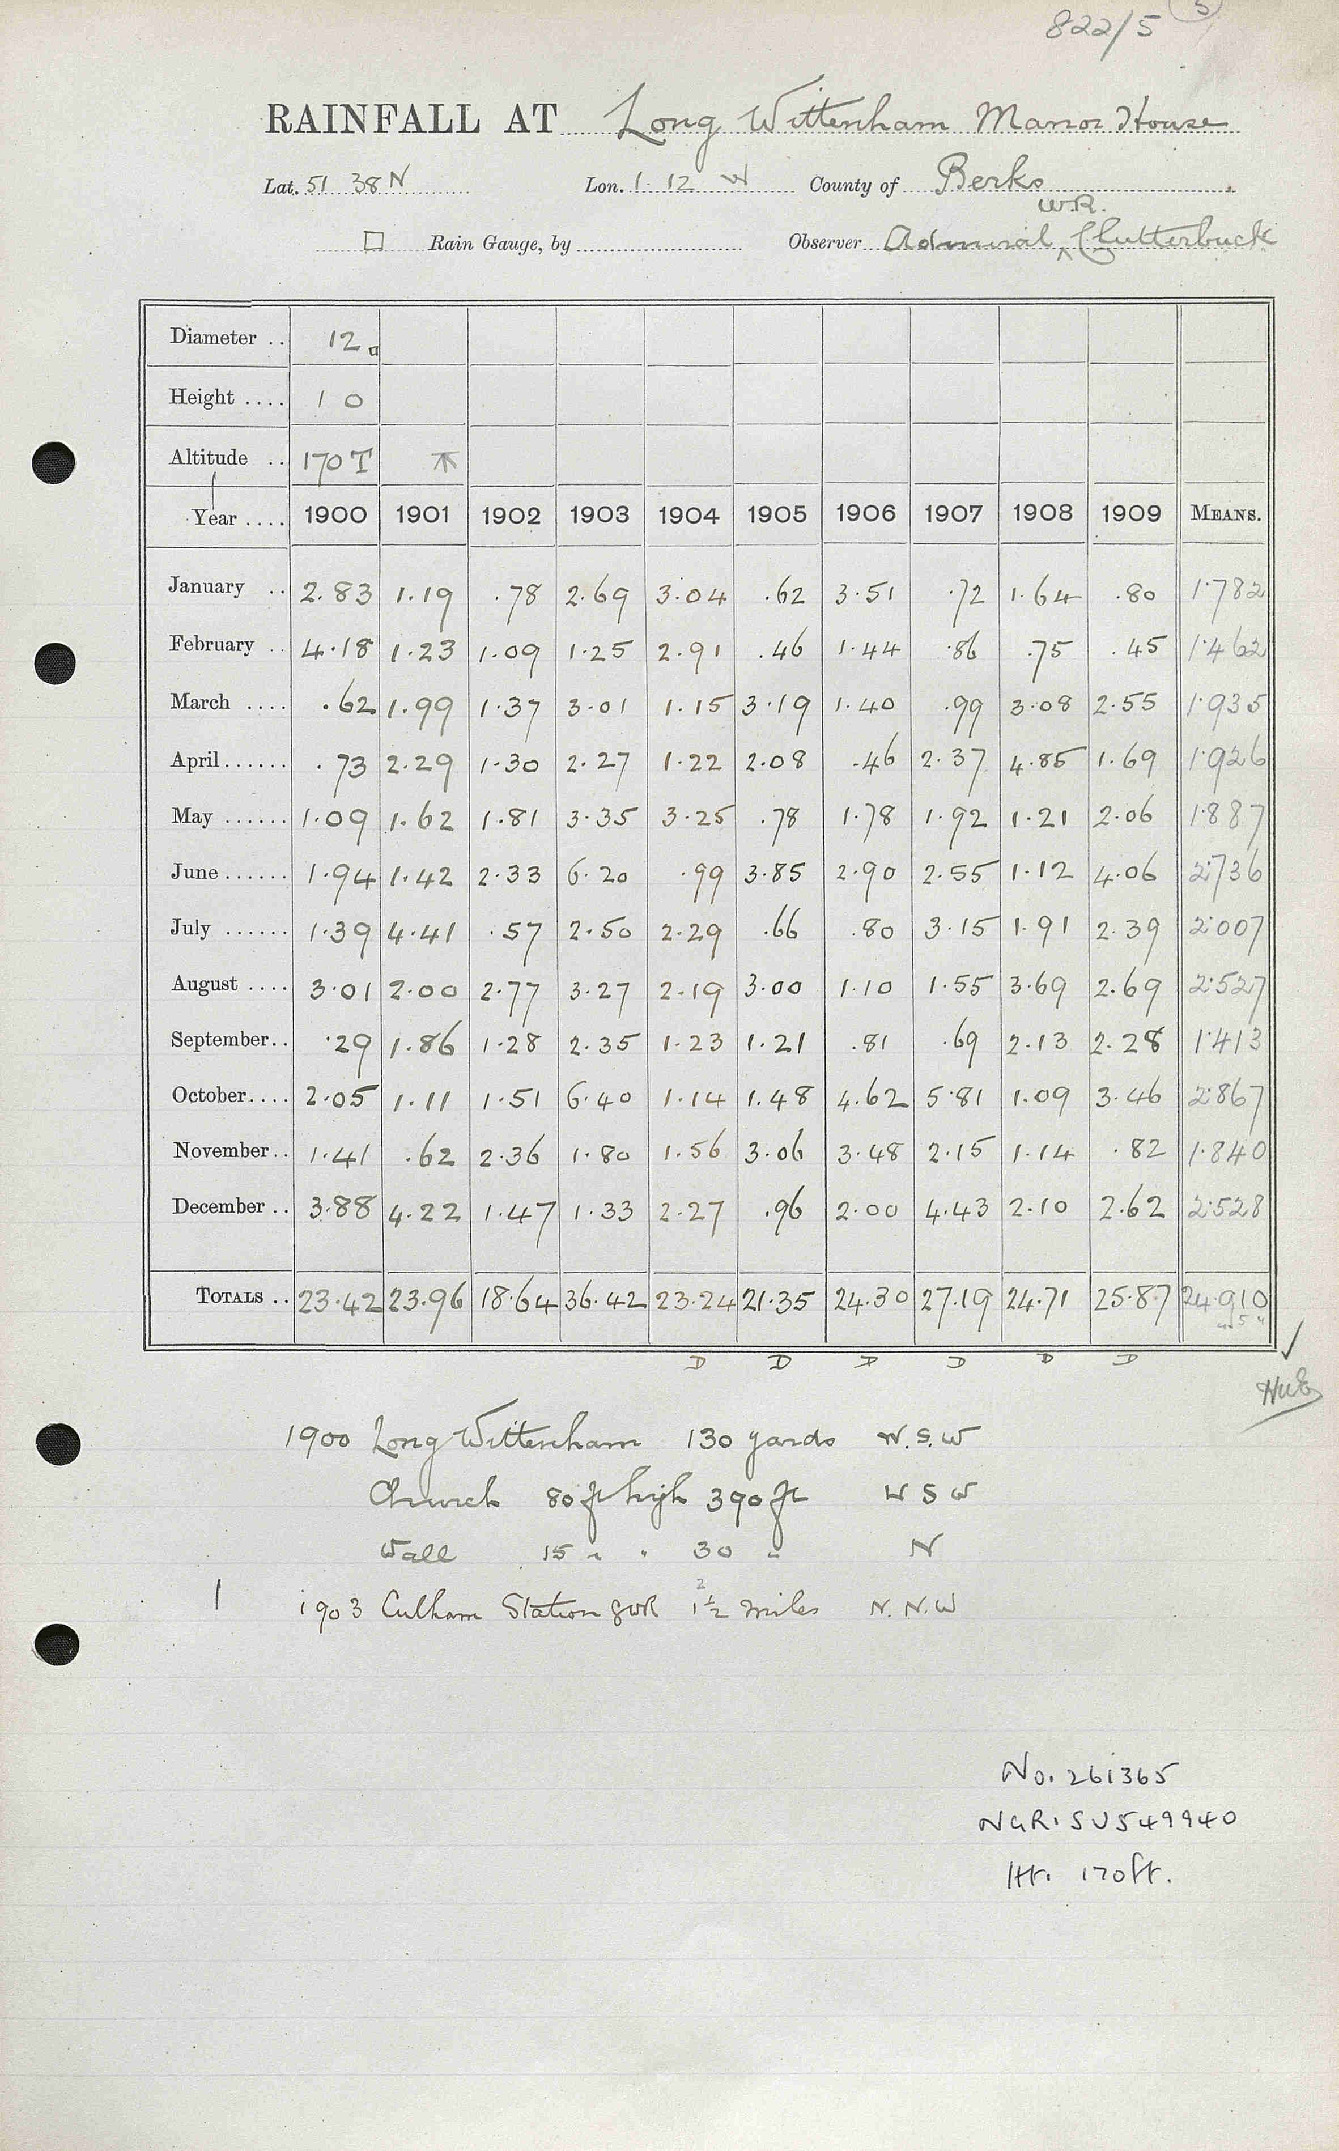 822/5 5
RAINFALL AT Long Wittenham Manor House
Lat. 51 38 N Lon. 1 12 W County of Berks
W.R.
□ Rain Gauge, by Observer Admiral ^ Clutterbuck
Diameter .. 12 □
Height .... 1 0
Altitude .. 170 T
Year .... 1900 1901 1902 1903 1904 1905 1906 1907 1908 1909 MEANS.
January .. 2.83 1.19 .78 2.69 3.04 .62 3.51 .72 1.64 .80 1.782
February .. 4.18 1.23 1.09 1.25 2.91 .46 1.44 .86 .75 .45 1.462
March .... .62 1.99 1.37 3.01 1.15 3.19 1.40 .99 3.08 2.55 1.935
April ...... .73 2.29 1.30 2.27 1.22 2.08 .46 2.37 4.85 1.69 1.926
May ...... 1.09 1.62 1.81 3.35 3.25 .78 1.78 1.92 1.21 2.06 1.887
June ...... 1.94 1.42 2.33 6.20 .99 3.85 2.90 2.55 1.12 4.06 2.736
July ...... 1.39 4.41 .57 2.50 2.29 .66 .80 3.15 1.91 2.39 2.007
August .... 3.01 2.00 2.77 3.27 2.19 3.00 1.10 1.55 3.69 2.69 2.527
September.. .29 1.86 1.28 2.35 1.23 1.21 .81 .69 2.13 2.28 1.413
October.... 2.05 1.11 1.51 6.40 1.14 1.48 4.62 5.81 1.09 3.46 2.867
November.. 1.41 .62 2.36 1.80 1.56 3.06 3.48 2.15 1.14 .82 1.840
December .. 3.88 4.22 1.47 1.33 2.27 .96 2.00 4.43 2.10 2.62 2.528
TOTALS .. 23.42 23.96 18.64 36.42 23.24 21.35 24.30 27.19 24.71 25.87 24.910
D D D D D D
1900 Long Wittenham 130 yards W.S.W
Church 80 ft high 390 ft W S W
Wall 15 " " 30 " N
1 1903 Culham Station GWR 2 1½ miles N.N.W
No. 261365
NGR. SU549940
Ht. 170ft.